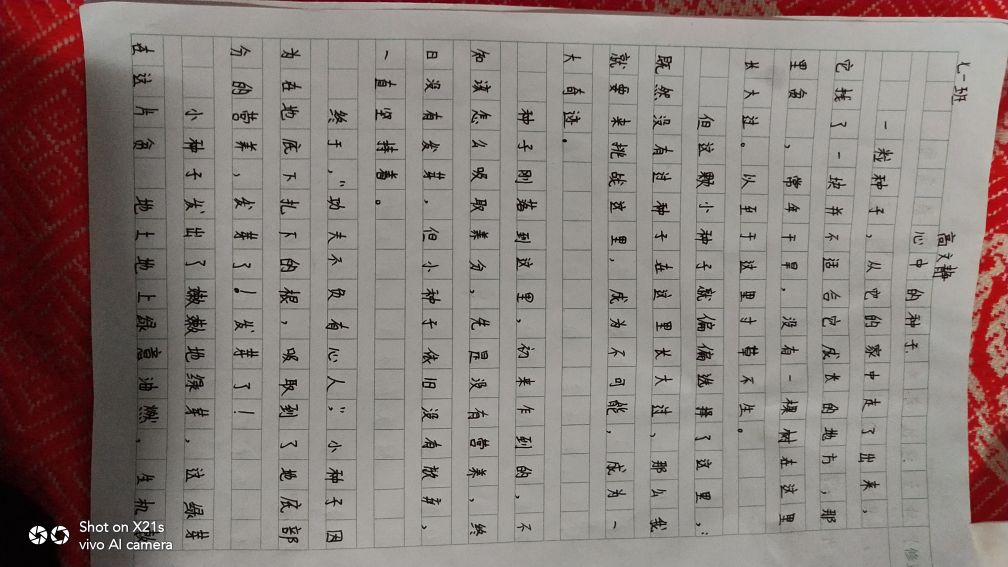 七一班
高文静
心中的种子
一粒种子，从它的家中走了出来，
它找了一块并不适合它成长的地方，那
里贫，常年干旱，没有一棵树在这里
长大过。以至于这里寸草不生。
但这颗小种子就偏偏选择了这里，：
既然没有过种子在这里长大过，那么我
就要来挑战这里，成为不可能，成为一
大奇迹。
种子刚落到这里，初来乍到的，不
知该怎么吸取养分，先是没有营养，终
日没有发芽，但小种子依旧没有放弃，
一直坚持着。
终于，“功夫不负有心人”，小种子因
为在地底下扎下的根，吸取到了地底部
分的营养，发芽了！发芽了！
小种子发出了嫩嫩地绿芽，这绿芽
在这片贫 地土地上绿意油燃，生机
Shot on X21s
vivo AI camera